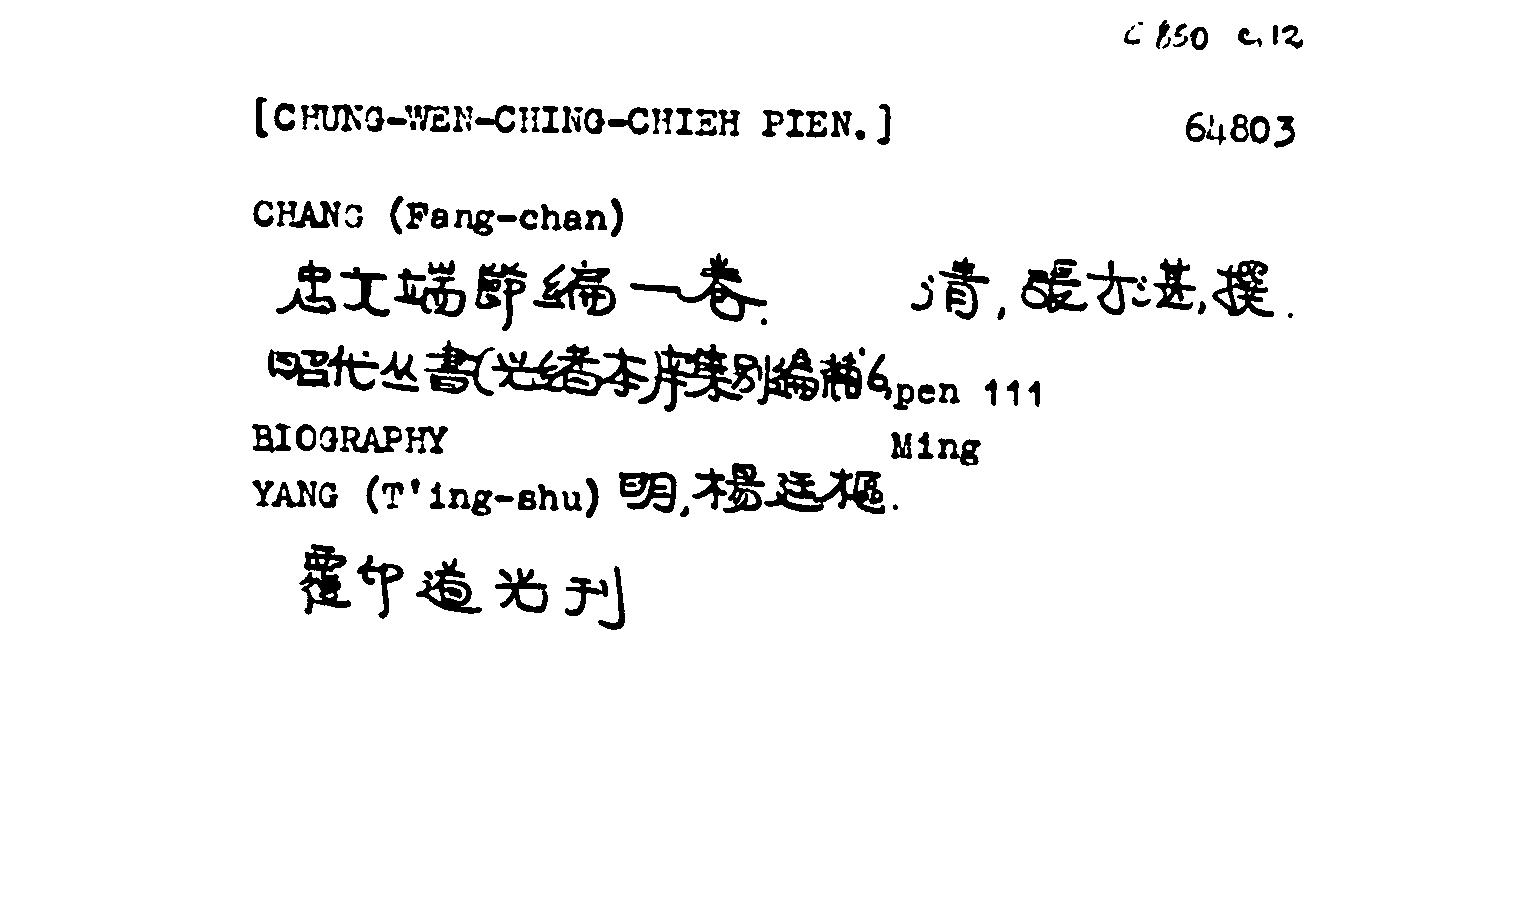 C 850 c.12
[CHUNG-WEN-CHING-CHIEH PIEN.] 64803
CHANG (Fang-chan)
忠文端節編一卷. 清,張方湛,撰.
昭代丛書(光緒本)庚集别編補6,pen 111
BIOGRAPHY Ming
YANG (T'ing-shu) 明,楊廷樞.
覆印道光刊